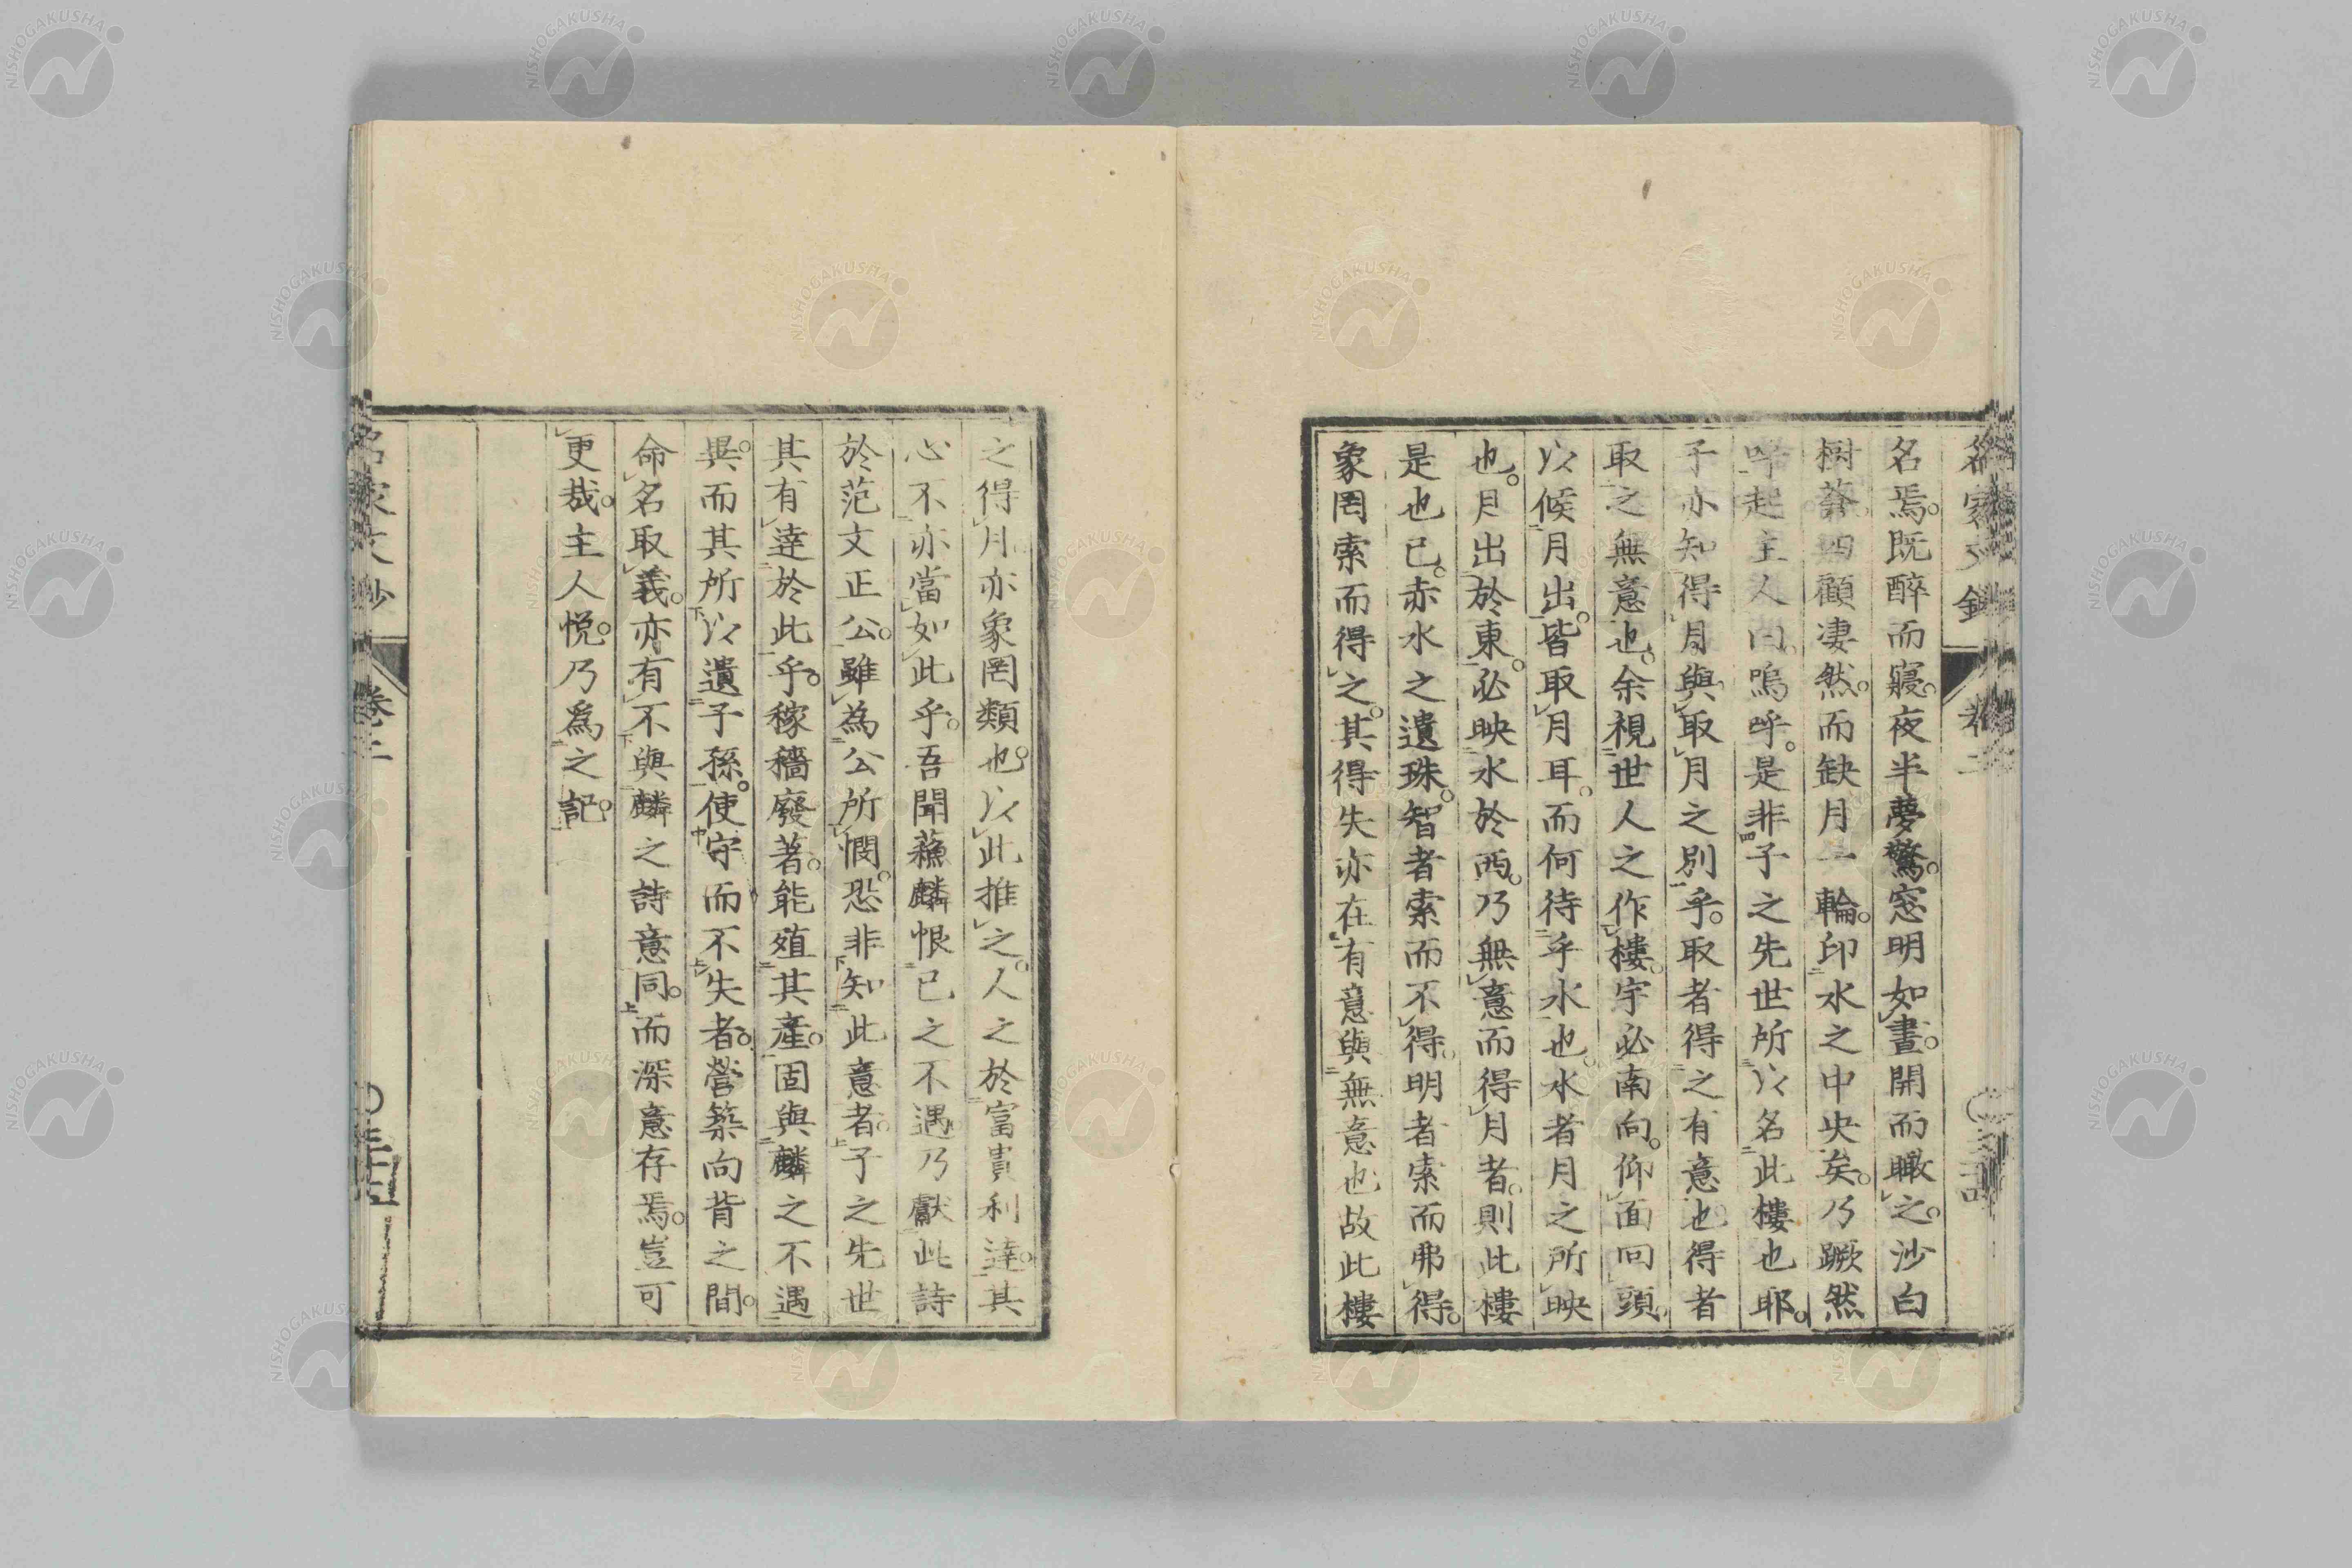 名焉。既醉而寢。夜半夢驚。窓明如晝。開而瞰之。沙白
樹蒼。四顧凄然。而缺月一輪。印水之中央矣。乃蹶然
呼起主人曰。嗚呼。是非子之先世所以名此樓也耶。
子亦知得月與取月之別乎。取者得之有意也。得者
取之無意也。余視世人之作樓。宇必南向。仰面回頭。
以候月出。皆取月耳。而何待乎水也。水者月之所映
也。月出於東。必映水於西。乃無意而得月者。則此樓
是也已。赤水之遺珠。智者索而不得。明者索而弗得。
象罔索而得之。其得失亦在有意與無意也故此樓
之得月。亦象罔類也。以此推之。人之於富貴利達。其
心不亦當如此乎。吾聞蘓麟恨已之不遇。乃獻此詩
於范文正公。公雖為公所憫。恐非知此意者。子之先世
其有達於此乎。稼穡廢著。能殖其產。固與麟之不遇
異。而其所以遺子孫。使守而不失者。營築向背之間。
命名取義。亦有不與麟之詩意同。而深意存焉。豈可
更哉。主人悅。乃爲之記。
名家文鈔
卷二